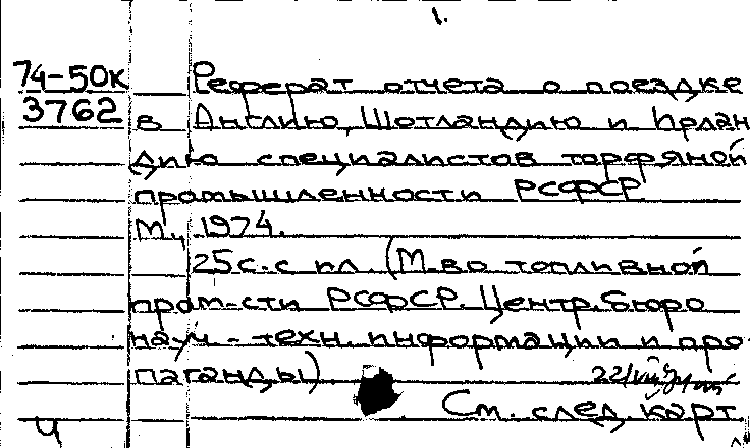 1.
74-50к Реферат отчета о поездке
3762 в Англию, Шотландию и Ирлан
дию специалистов торфяной
промышленности РСФСР
М., 1974.
25 с. с ил. (М-во топливной
пром-сти РСФСР. Центр. бюро
науч.-техн. информации и про
паганды).
См. след. карт.
ч